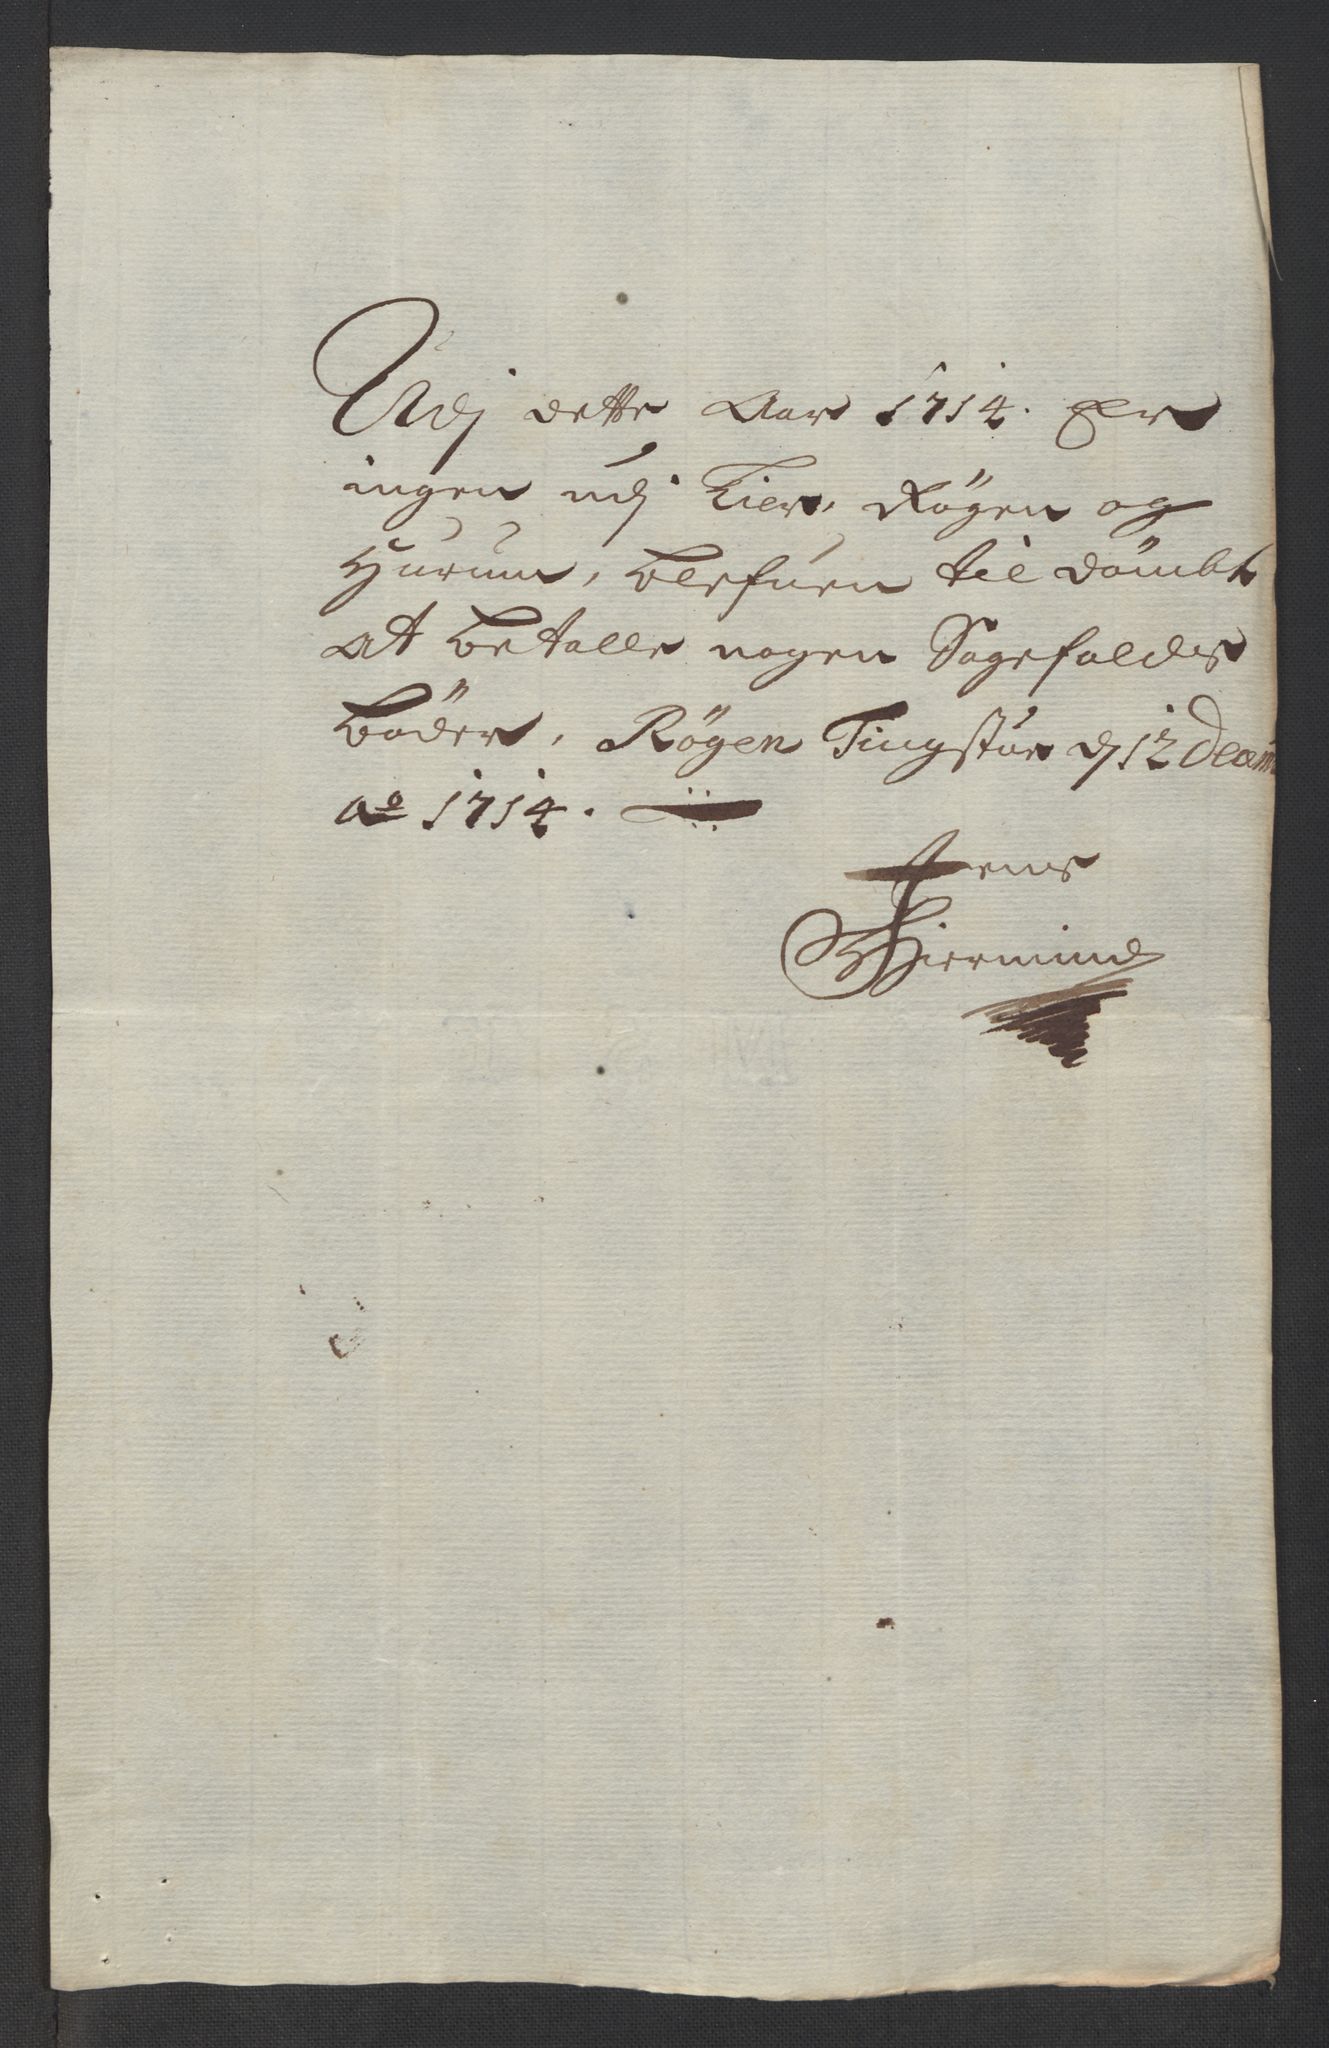 Udj dette Aar 1714. Er
ingen udj Lier, Røgen og
Hurum, blefuen til dömbt
at betalle nogen Sagefaldes
böder, Røgen Tingstue d 12 Decem
Ao 1714.
Jens
Biermind